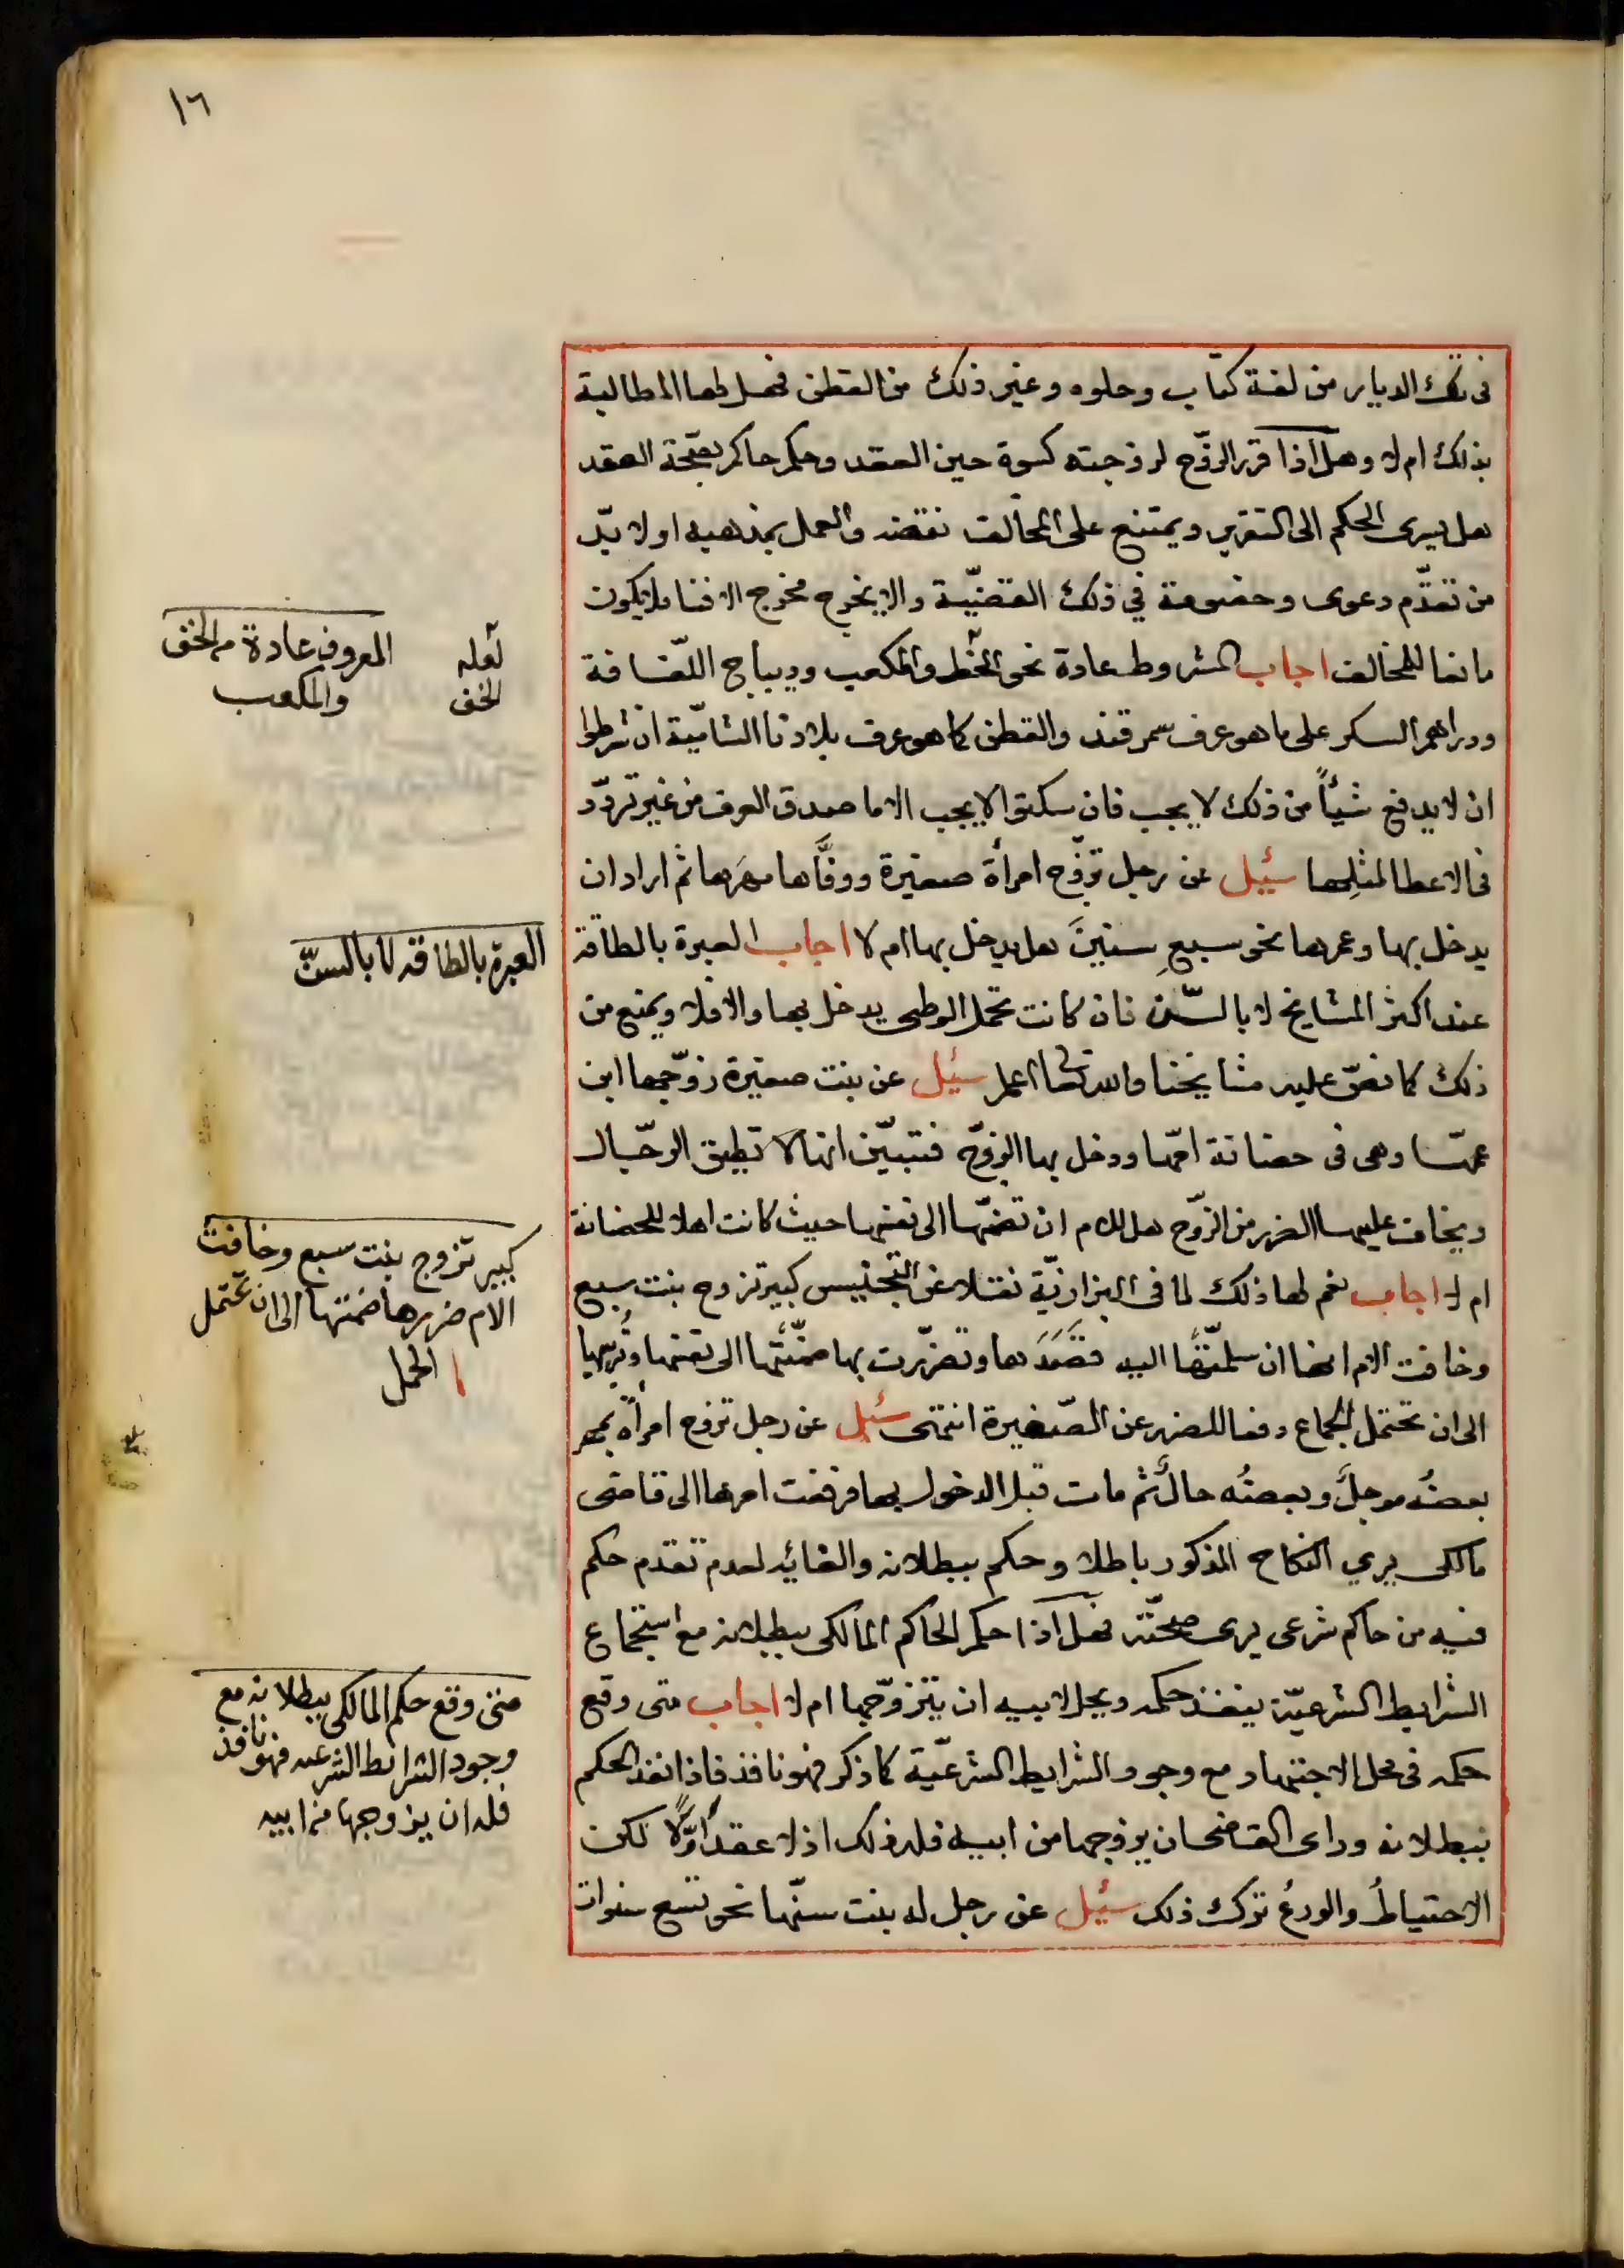 ١٦
في تلك الديار من لفة كتاب وحلوه وغير ذلك من القطن فهل لها المطالبة
بذلك ام لا وهل اذا قرر الزوّج لزوجته كسوة حين العقد وحكم حاكم بصّحة العقد
هل يسرى الحكم الى التقرير ويمتنع على المخالف نقضه والعمل بمذهبه او لا بدّ
من تقدّم دعوى وخصومة في ذلك القضيّة والا يخرج مخرج الافتا فلا يكون
مانعا للمخالف اجاب المشروط عادة نحو الخط والمكعب وديباج اللّفافة
ودراهم السكر على ما هو عرف سمرقند والقطن كما هو عرف بلادنا الشاميّة ان شرطوا
ان لا يدفع شيئاً من ذلك لا يجب فان سكتوا لا يجب الا ما صدق العرف من غير تردّد
في الاعطا لمثلها سئيل عن رجل تزوّج امرأة صغيرة ووفّاها مهرها ثم اراد ان
يدخل بها وعمرها نحو سبع سنين هل يدخل بها ام لا اجاب العبرة بالطاقة
عند اكثر المشايخ لا بالسّن فان كانت تحمل الوطى يدخل بها والا فلا ويمنع من
ذلك كما نصّ عليه مشايخنا والله تعالى اعلم سئيل عن بنت صغيرة زوّجها ابن
عمّها وهى فى حضانة امّها ودخل بها الزوّج فتبيّن انها لا تطيق الرجّال
ويخاف عليها الضرر من الزوّج هل للام ان تضمّها الى نفسها حيث كانت اهلا للحضانة
ام لا اجاب نعم لها ذلك لما فى البزازيّة نقلا عن التجنيس كبير تزوج بنت سبع
وخافت الام انها ان سلمتّها اليه قصدها وتضرّرت بها ضمّتها الى نفسها وتربيها
الى ان تحتمل الجماع دفعا للضرر عن الصّغيرة انتهى سئيل عن رجل تزوج امرأة بمهر
بعضه موجل وبعضه حال ثم مات قبل الدخول بها فرفعت امرها الى قاضى
مالكى يري النكاح المذكور باطلا وحكم ببطلانه والغائه لعدم تقدم حكم
فيه من حاكم شرعى يرى صحتّه فهل اذا حكم الحاكم المالكى ببطلانه مع استجماع
الشرايط الشرعيّة ينفذ حكمه ويحل لابيه ان يتزوّجها ام لا اجاب متى وقع
حكمه فى محل الاجتهاد مع وجود الشرايط الشرعيّة كما ذكر فهو نافذ فاذا نفذ الحكم
ببطلانه وراى القاضى ان يزوجها من ابيه فله ذلك اذ لا عقد اوّلا لكن
الاحتياط والورع ترك ذلك سئيل عن رجل له بنت سنّها نحو تسع سنوات
لعله
الخف
المعروف عادة من الخف
والمكعب
العبرة بالطاقه لا بالسنّ
كبير تزوج بنت سبع وخافت
الام ضررها ضمتها الى ان تحتمل
الحمل
متى وقع حكم المالكى ببطلانه مع
وجود الشرايط الشرعيه فهو نافذ
فله ان يزوجها من ابيه